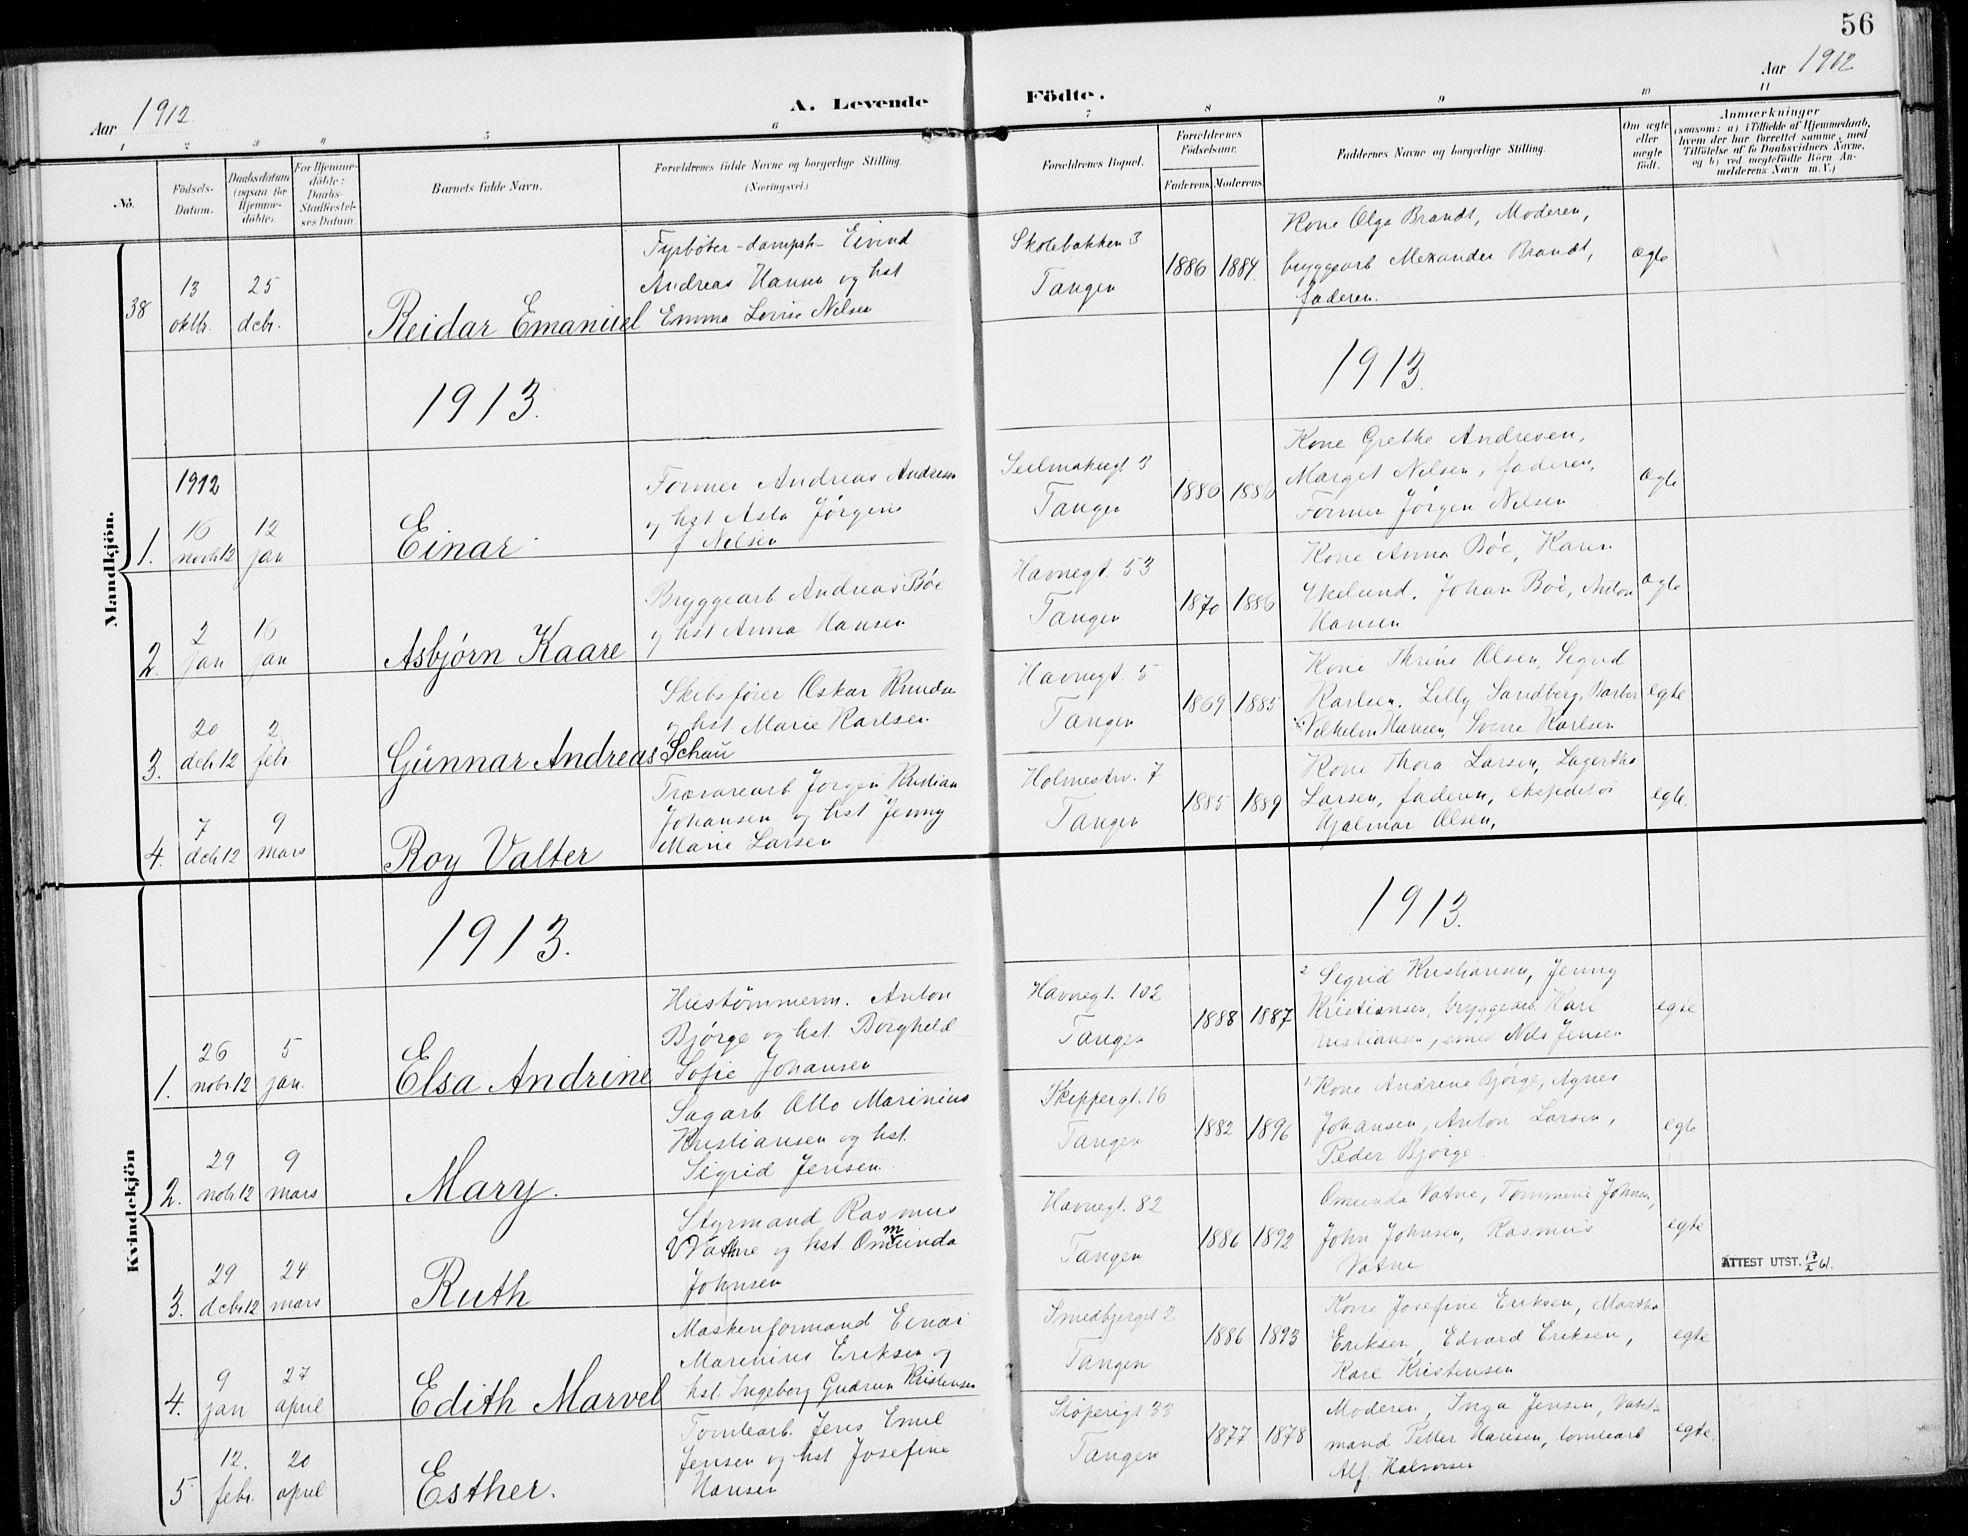 56
Aar 1912
A. Levende
Födte.
Aar 1912
1 2 3 4 5 6 7 8 9 10 11
No.
Födsels-
Datum.
Daabsdatum
(ogsaa for
Hjemme-
döbte).
For Hjemme-
döbte:
Daabs-
Stadfæstel-
ses Datum
Barnets fulde Navn.
Forældrenes fulde Navne og borgerlige Stilling.
(Næringsvei.)
Forældrenes Bopæl.
Forældrenes
Födselsaar.
Faderens Moderens
Faddernes Navne og borgerlige Stilling.
Om ægte
eller
uægte
födt.
Anmærkninger
(saasom: a) i Tilfælde af Hjemmedaab,
hvem der har forrettet samme, med
Tilföielse af to Daabsvidners Navne,
og b) ved uægtefödte Börn An-
melderens Navn m. V.)
Mandkjön.
38
13
oktbr.
25
debr.
Reidar Emanuel
Fyrbøter-dampsk- Eivind
Andreas Hansen og hst
Emma Lovise Nilsen
Skolebakken 3
Tangen
1886 1884.
Kone Olga Brandt, Moderen,
bryggearb Alexander Brandt,
faderen.
ægte
1913.
1913.
1.
1912
16
novb 12
12
jan
Einar
Former Andreas Andresen
og hst Asta Jørgine
Nilsen
Seilmakergt 3
Tangen
1886 1886
Kone Grethe Andresen,
Marget Nilsen, faderen,
Former Jørgen Nilsen
ægte
2.
2
jan
16
jan
Asbjørn Kaare
Bryggearb Andreas Bøe
og hst Anna Hansen
Havnegt. 53
Tangen
1870 1886
Kone Anna Bøe, Karen
Ekelund, Johan Bøe, Anton
Hansen
ægte
3.
20
deb 12
2
febr.
Gunnar Andreas Schau
Skibsfører Oskar Knudsen
og hst. Marie Karlsen
Havnegt. 5
Tangen
1869 1885
Kone Thrine Olsen, Sigrid
Karlsen, Lilly Sandberg, Barber
Vilhelm Hansen, Sverre Karlsen
egte
4.
7
deb 12
9
mars
Roy Valter
Trævarearb Jørgen Kristian
Johansen og hst Jenny
Marie Larsen
Holmestrv. 7
Tangen
1885 1889
Kone Thora Larsen, Lagertha
Larsen, faderen, ekspeditør
Hjalmar Olsen,
egte.
1913.
1913.
Kvindekjön
1.
26
nobr 12
5
jan.
Elsa Andrine
Hustømmerm. Anton
Bjørge og hst. Borghild
Sofie Johansen
Havnegt. 102
Tangen
1888 1887
2 Sigrid Kristiansen, Jenny
Kristiansen, bryggearb Karl
Kristiansen, smed Nils Jensen
egte
2.
29
nobr 12
9
mars
Mary.
Sagarb Otto Marinius
Kristiansen og hst.
Sigrid Jensen
Skippergt. 16
Tangen
1882 1896
1 Kone Andrine Bjørge, Agnes
Johansen, Anton Larsen,
Peder Bjørge.
egte
3.
29
debr 12
24
mars
Ruth
Styrmand Rasmus
Vatne og hst. Omunda
Johnsen
Havnegt. 82
Tangen
1886 1892
Omunda Vatne, Tommine Johnsen,
John Johnsen, Rasmus
Vatne
egte
ATTEST UTST. 17/2 61.
4.
9
jan
27
april
Edith Marvel
Maskenformand Einar
Marinius Eriksen og
hst. Ingeborg Gudrun Kristensen
Smedbjerget 2
Tangen
1886 1893
Kone Josefine Eriksen, Martha
Eriksen, Edvard Eriksen,
Karl Kristensen
egte
5
12.
febr.
20
april
Esther.
Tomtearb. Jens Emil
Jensen og hst Josefine
Hansen
Støperigt 33
Tangen
1877 1878
Moderen, Inga Jensen, Vakt-
mand Petter Hansen, tomtearb
Alf Halvorsen
egte.